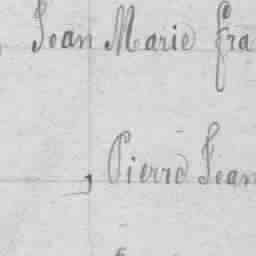 Jean Marie fra
, Pierre Jean